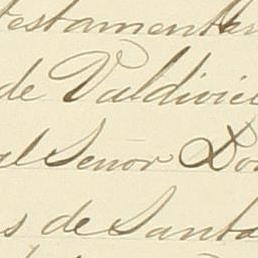 testamentar
de Valdivie
al Señor Do
s de Santa